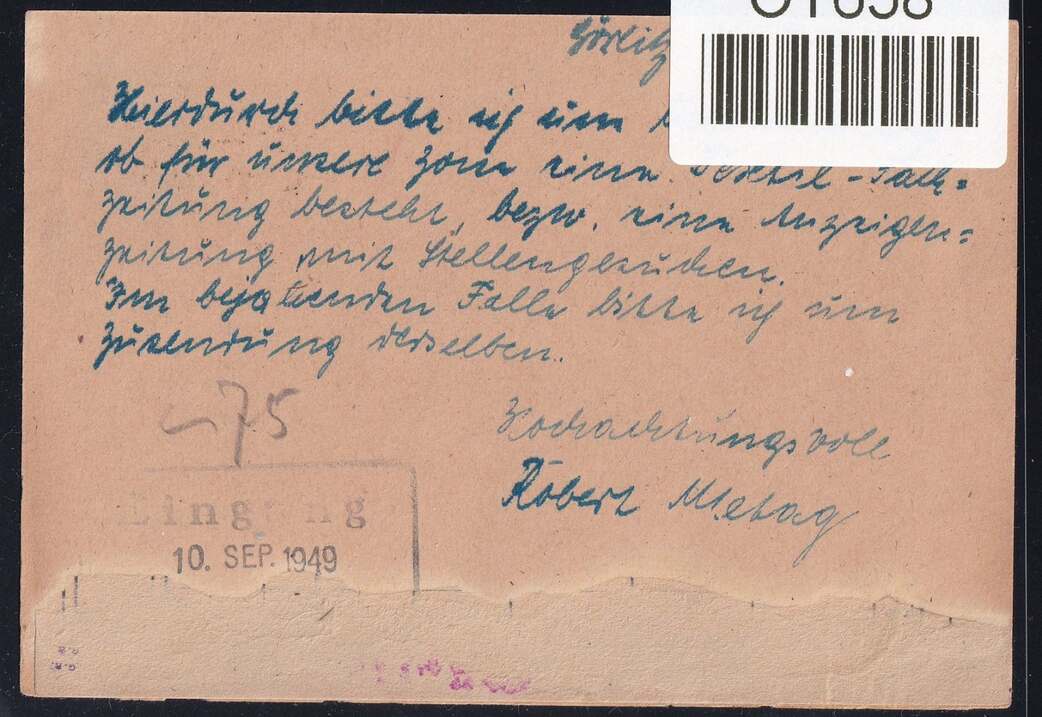 Görlitz
Hierdurch bitte ich um
ob für unsere Zone eine Textil-Fach=
zeitung besteht, bezw. eine Anzeigen=
zeitung mit Stellengesuchen.
Im bejahenden Falle bitte ich um
Zusendung derselben.
75
Hochachtungsvoll
Robert Metag
Eingang
10. SEP. 1949